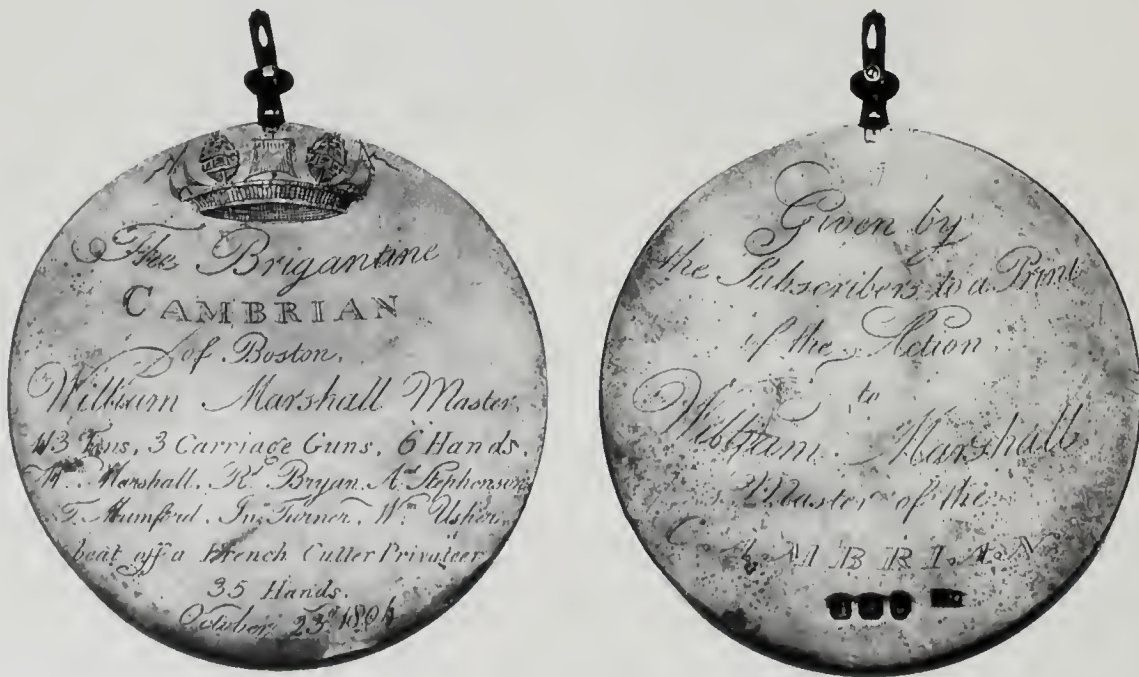 The Brigantine
CAMBRIAN
of Boston,
William Marshall Master,
113 Tons, 3 Carriage Guns, 6 Hands.
Wm. Marshall, Rd. Bryan, Ad. Stephenson
T. Mumford, Jno. Turner, Wm. Usher,
beat off a French Cutter Privateer
35 Hands.
October 23d
Given by
the Subscribers to a Print
of the Action,
to
William Marshall
Master of the
CAMBRIAN